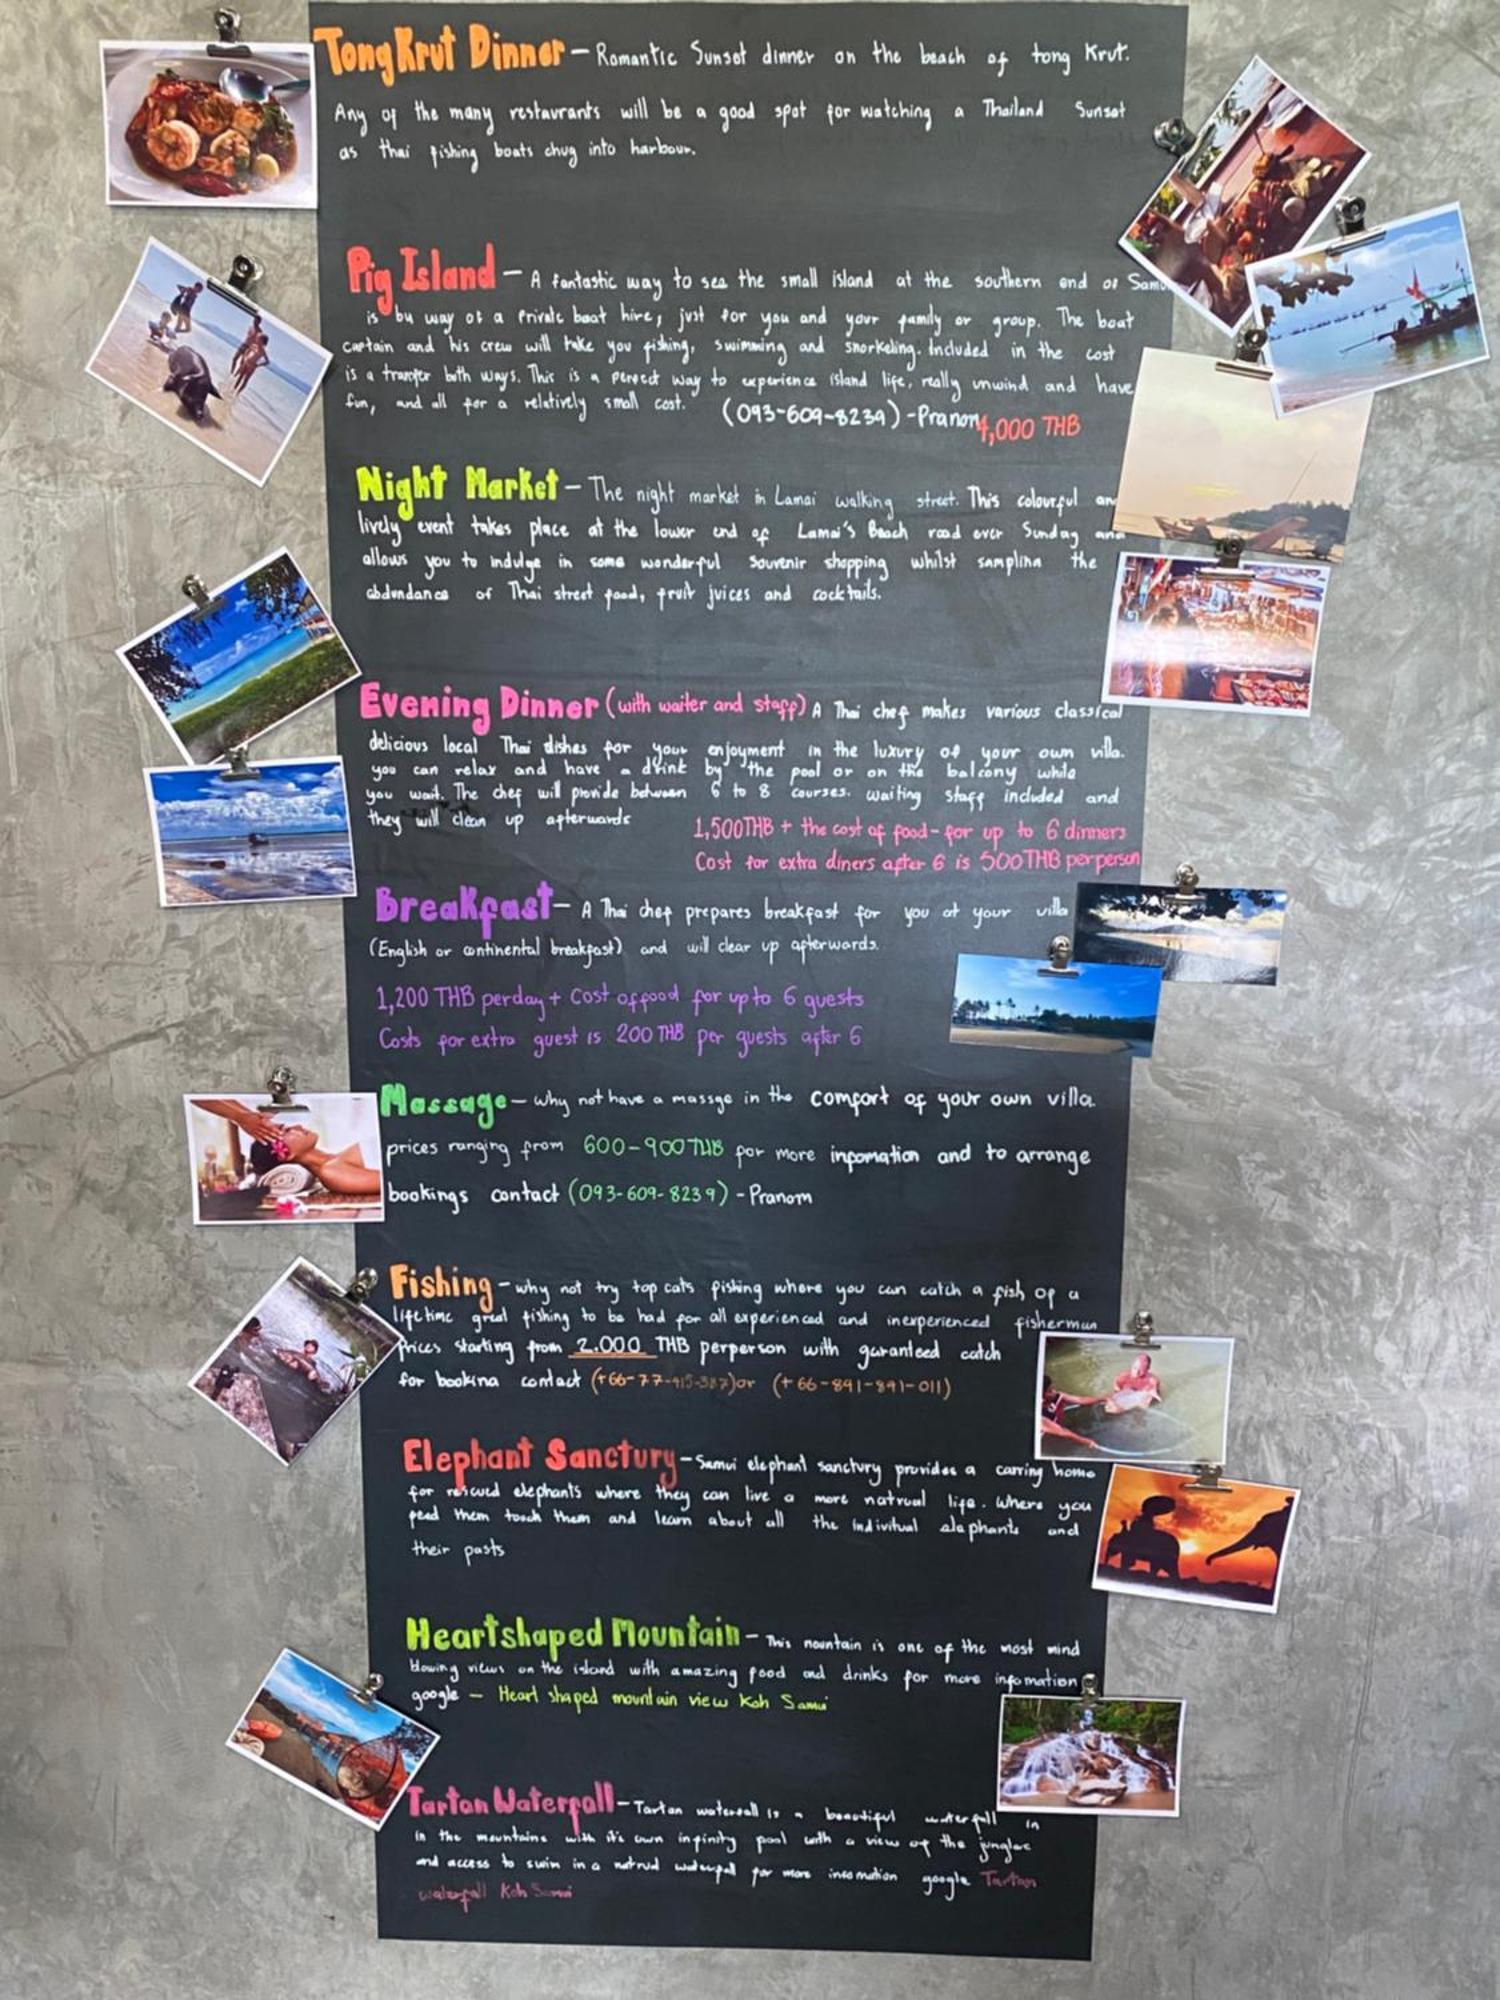 TongKrut Dinner - Romantic Sunset dinner on the beach of tong Krut.
Any of the many restaurants will be a good spot for watching a Thailand Sunset
as thai fishing boats chug into harbour.
Pig Island - A fantastic way to see the small island at the southern end of Samu
is by way of a Private boat hire, just for you and your family or group. The boat
captain and his crew will take you fishing, swimming and snorkeling. Included in the cost
is a tranfer both ways. This is a perect way to experience island life, really unwind and have
fun, and all for a relatively small cost. (093-609-8239) -Pranom 4,000 THB
Night Market - The night market in Lamai walking street. This colourful an
lively event takes place at the lower end of Lamai's Beach road over Sunday and
allows you to indulge in some wonderful Souvenir shopping whilst samplina the
abdundance of Thai street food, fruit juices and cocktails.
Evening Dinner (with waiter and staff) A Thai chef makes various classical
delicious local Thai dishes for your enjoyment in the luxury of your own villa.
you can relax and have a drink by the pool or on the balcony while
you wait. The chef will provide between 6 to 8 courses. waiting staff included and
they will clean up afterwards
1,500THB + the cost of food - for up to 6 dinners
Cost for extra diners after 6 is 500THB per person
Breakfast - A Thai chef prepares breakfast for you at your villa
(English or continental breakfast) and will clear up afterwards.
1,200 THB perday + Cost of food for up to 6 guests
Costs for extra guest is 200 THB per guests after 6
Massage - why not have a massge in the comfort of your own villa.
prices ranging from 600-900THB for more infomation and to arrange
bookings contact (093-609-8239) - Pranom
Fishing - why not try top cats fishing where you can catch a fish of a
life time great fishing to be had for all experienced and inexperienced fisherman
Prices starting from 2.000 THB perperson with garanteed catch
for bookina contact (+66-77-415-387) or (+66-841-841-011)
Elephant Sanctury - Samui elephant sanctury provides a carring home
for rescued elephants where they can live a more natrual life. Where you
feed them touch them and learn about all the indivitual elephants and
their pasts
Heartshaped Mountain - This mountain is one of the most mind
blowing views on the island with amazing food and drinks for more infomation
google - Heart shaped mountain view Koh Samui
Tartan Waterfall - Tartan waterfall is a beautiful waterfall in
in the mountains with it's own infinity pool with a view of the jungles
and access to swim in a natrual waterfall for more infomation google Tartan
waterfall Koh Samui